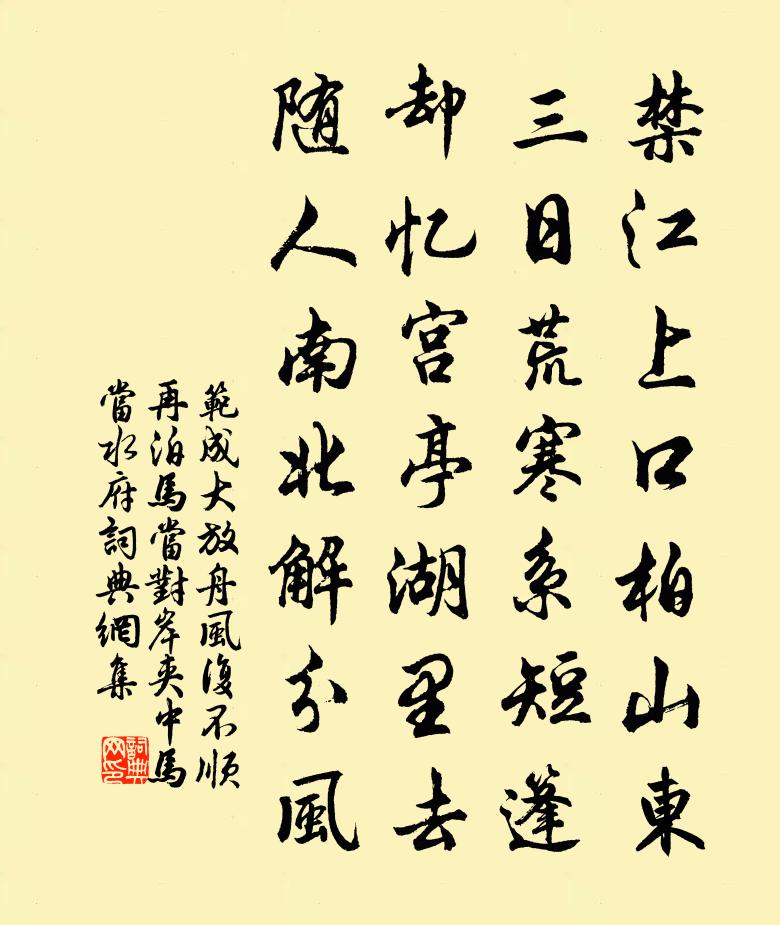 禁江上口柏山東
三日荒寒系短篷
却忆宫亭湖里去
随人南北解分風
範成大放舟風復不順
再泊馬當對岸夾中馬
當水府詞典網集
詞典
网印